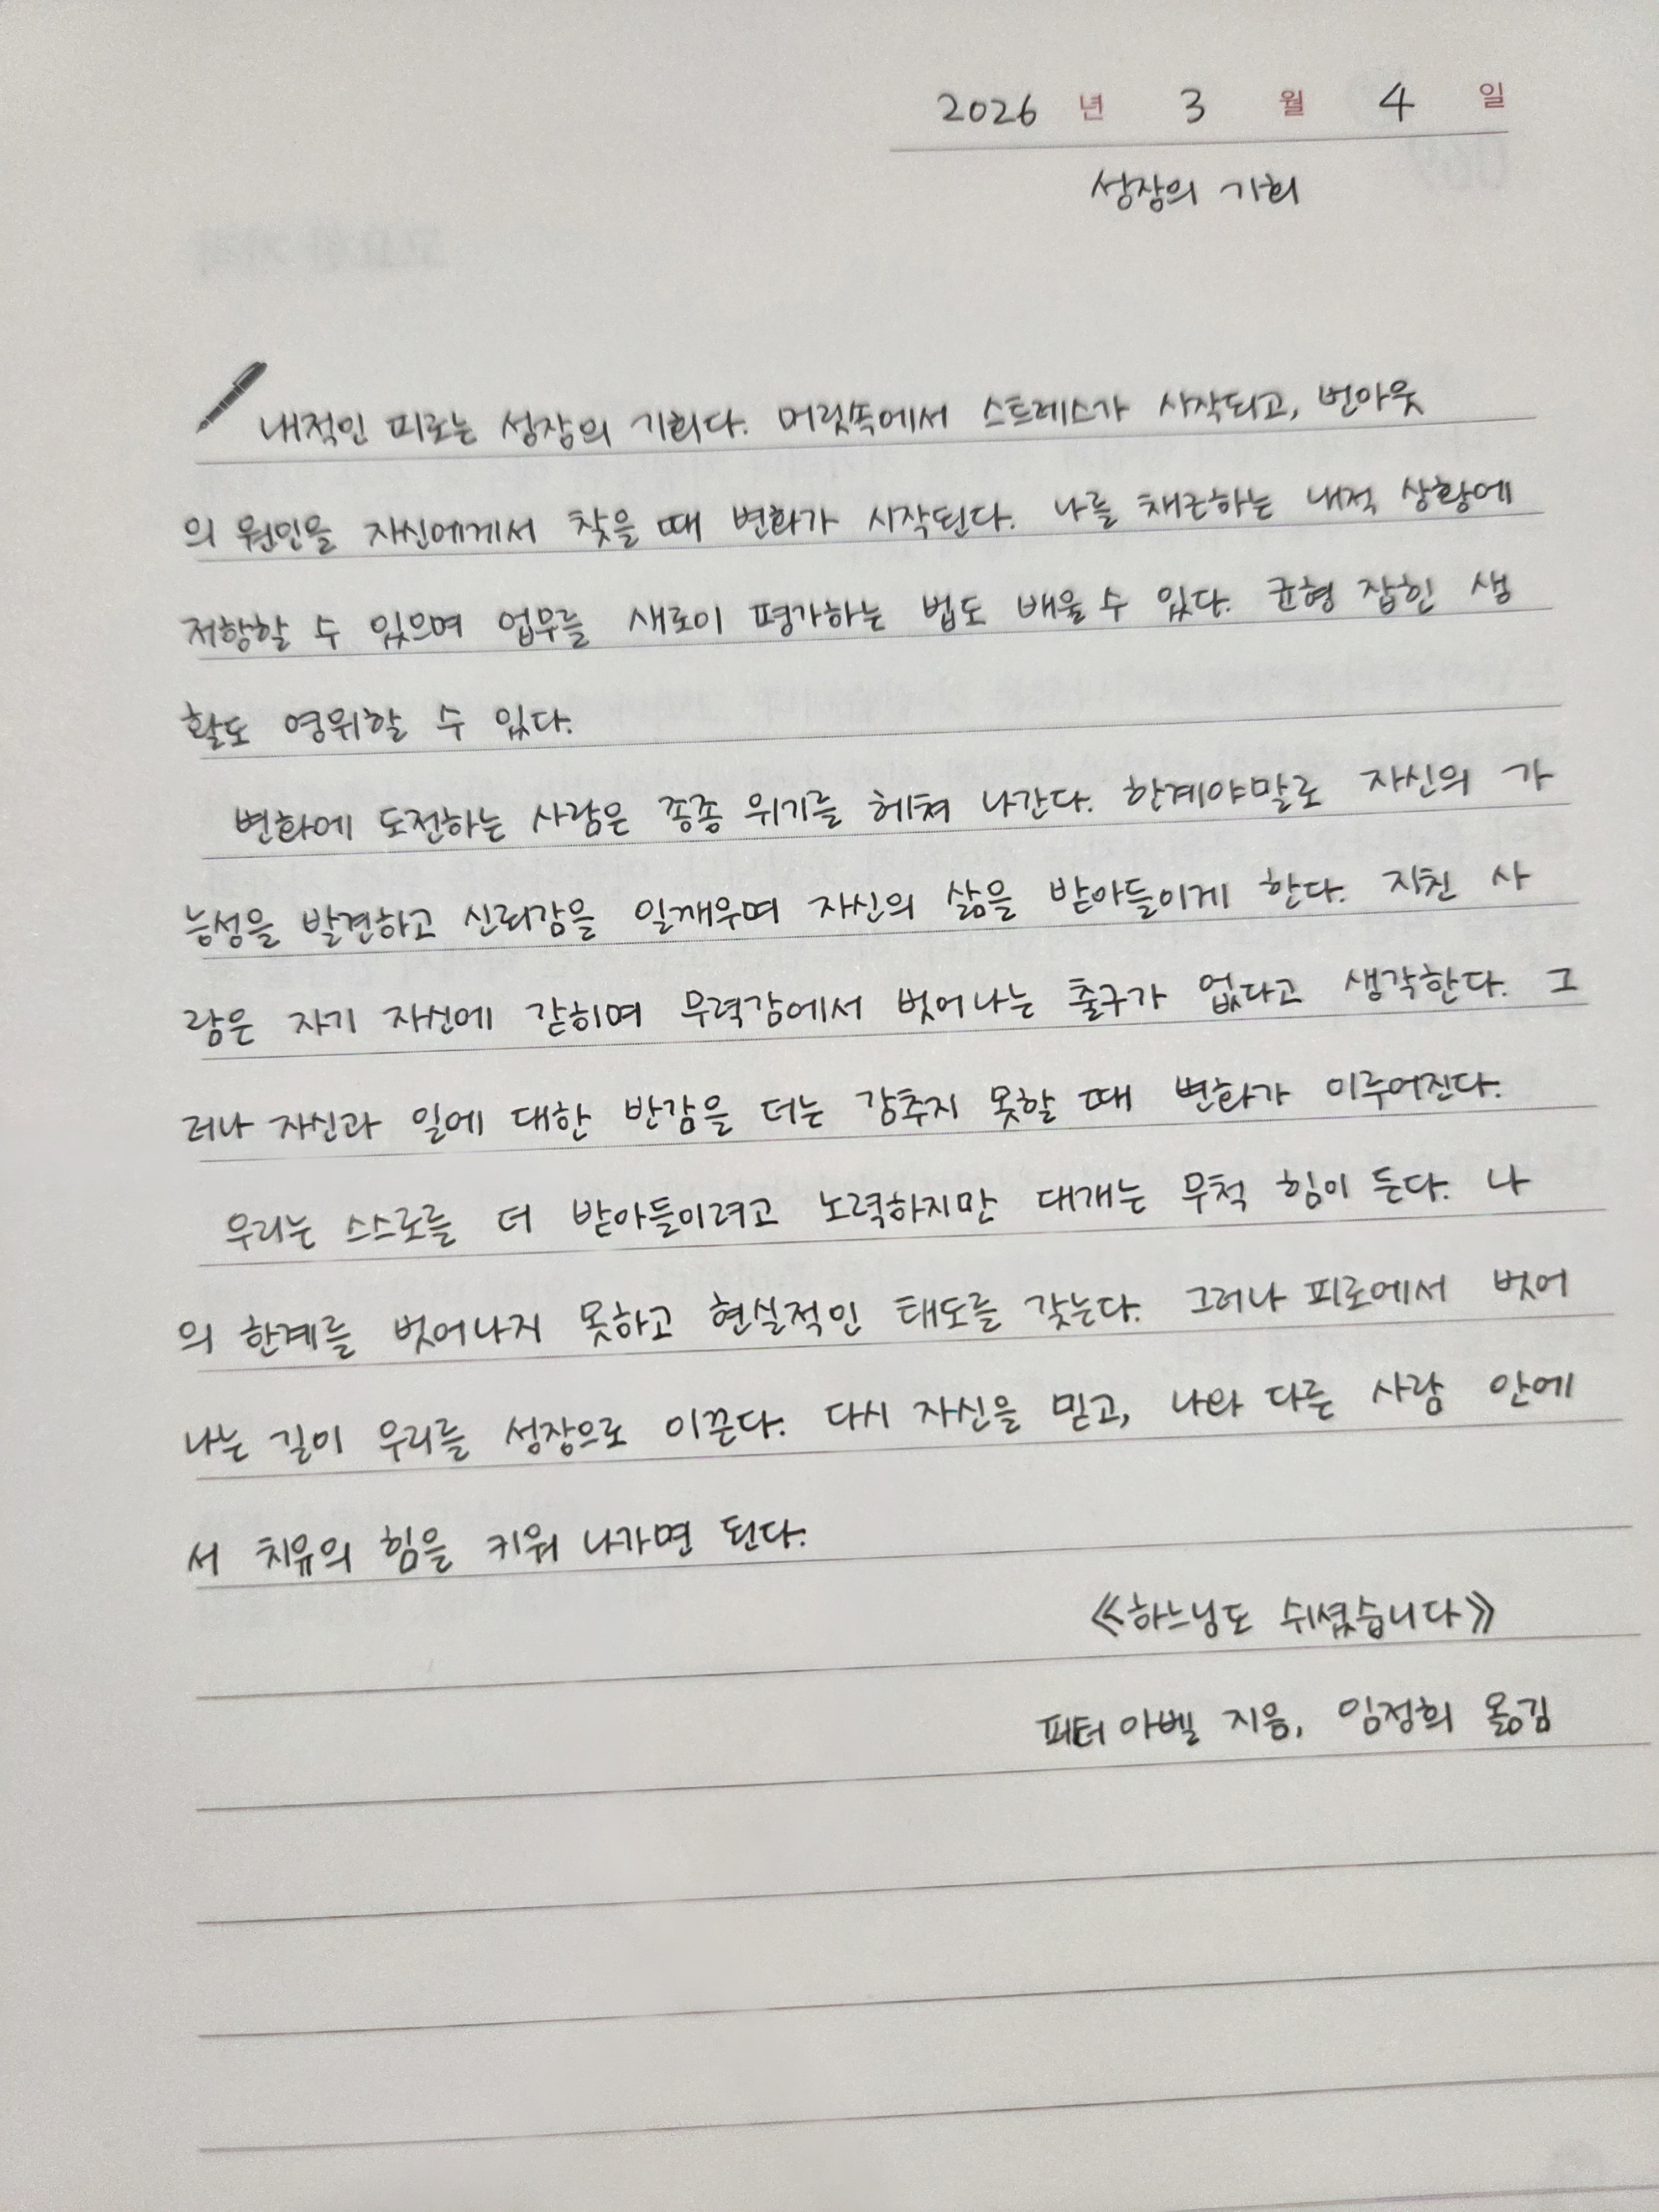 2026 년 3 월 4 일
성장의 기회
내적인 피로는 성장의 기회다. 머릿속에서 스트레스가 시작되고, 번아웃
의 원인을 자신에게서 찾을 때 변화가 시작된다. 나를 채근하는 내적 상황에
저항할 수 있으며 업무를 새로이 평가하는 법도 배울 수 있다. 균형 잡힌 생
활도 영위할 수 있다.
변화에 도전하는 사람은 종종 위기를 헤쳐 나간다. 한계야말로 자신의 가
능성을 발견하고 신뢰감을 일깨우며 자신의 삶을 받아들이게 한다. 지친 사
람은 자기 자신에 갇히며 무력감에서 벗어나는 출구가 없다고 생각한다. 그
러나 자신과 일에 대한 반감을 더는 감추지 못할 때 변화가 이루어진다.
우리는 스스로를 더 받아들이려고 노력하지만 대개는 무척 힘이 든다. 나
의 한계를 벗어나지 못하고 현실적인 태도를 갖는다. 그러나 피로에서 벗어
나는 길이 우리를 성장으로 이끈다. 다시 자신을 믿고, 나와 다른 사람 안에
서 치유의 힘을 키워 나가면 된다.
《하느님도 쉬셨습니다》
피터 아벨 지음, 임정희 옮김